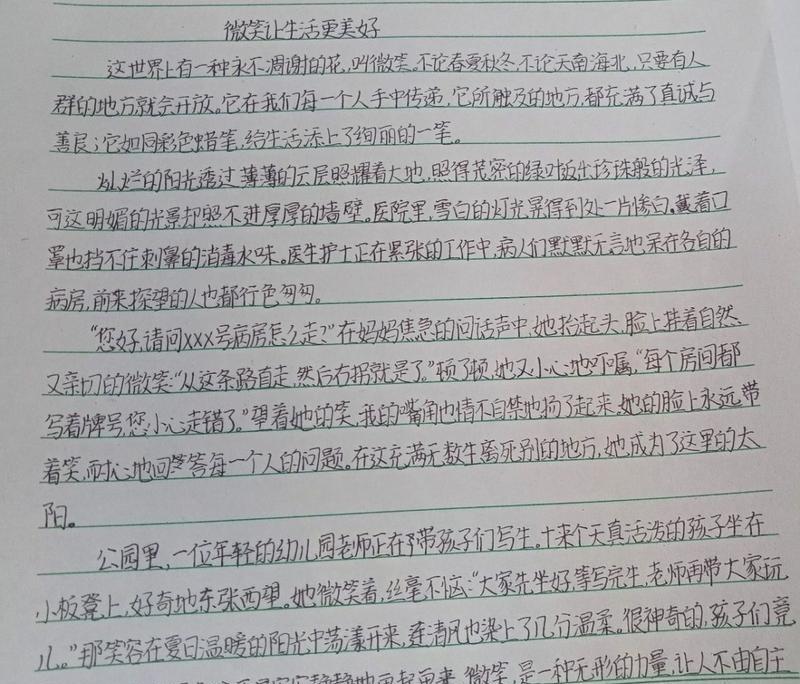 微笑让生活更美好
这世界上有一种永不凋谢的花,叫微笑。不论春夏秋冬,不论天南海北,只要有人
群的地方就会开放。它在我们每一个人手中传递,它所触及的地方,都充满了真诚与
善良;它如同彩色蜡笔,给生活添上了绚丽的一笔。
灿烂的阳光透过薄薄的云层照耀着大地,照得茂密的绿叶返出珍珠般的光泽,
可这明媚的光景却照不进厚厚的墙壁。医院里,雪白的灯光晃得到处一片惨白。戴着口
罩也挡不住刺鼻的消毒水味。医生护士正在紧张的工作中,病人们默默无言地呆在各自的
病房,前来探望的人也都行色匆匆。
“您好,请问XXX号病房怎么走?”在妈妈焦急的问话声中,她抬起头,脸上挂着自然
又亲切的微笑:“从这条路直走,然后右拐就是了。”顿了顿,她又小心地叮嘱,“每个房间都
写着牌号,您小心走错了。”望着她的笑,我的嘴角也情不自禁地扬了起来,她的脸上永远带
着笑,耐心地回答每一个人的问题。在这充满无数生离死别的地方,她成为了这里的太
阳。
公园里,一位年轻的幼儿园老师正在带孩子们写生。十来个天真活泼的孩子坐在
小板凳上,好奇地东张西望。她微笑着,丝毫不恼:“大家先坐好,等写完生,老师再带大家玩
儿。”那笑容在夏日温暖的阳光中荡漾开来,连清风也染上了几分温柔。很神奇的,孩子们竟
静静地画起画来。微笑,是一种无形的力量,让人不由自主